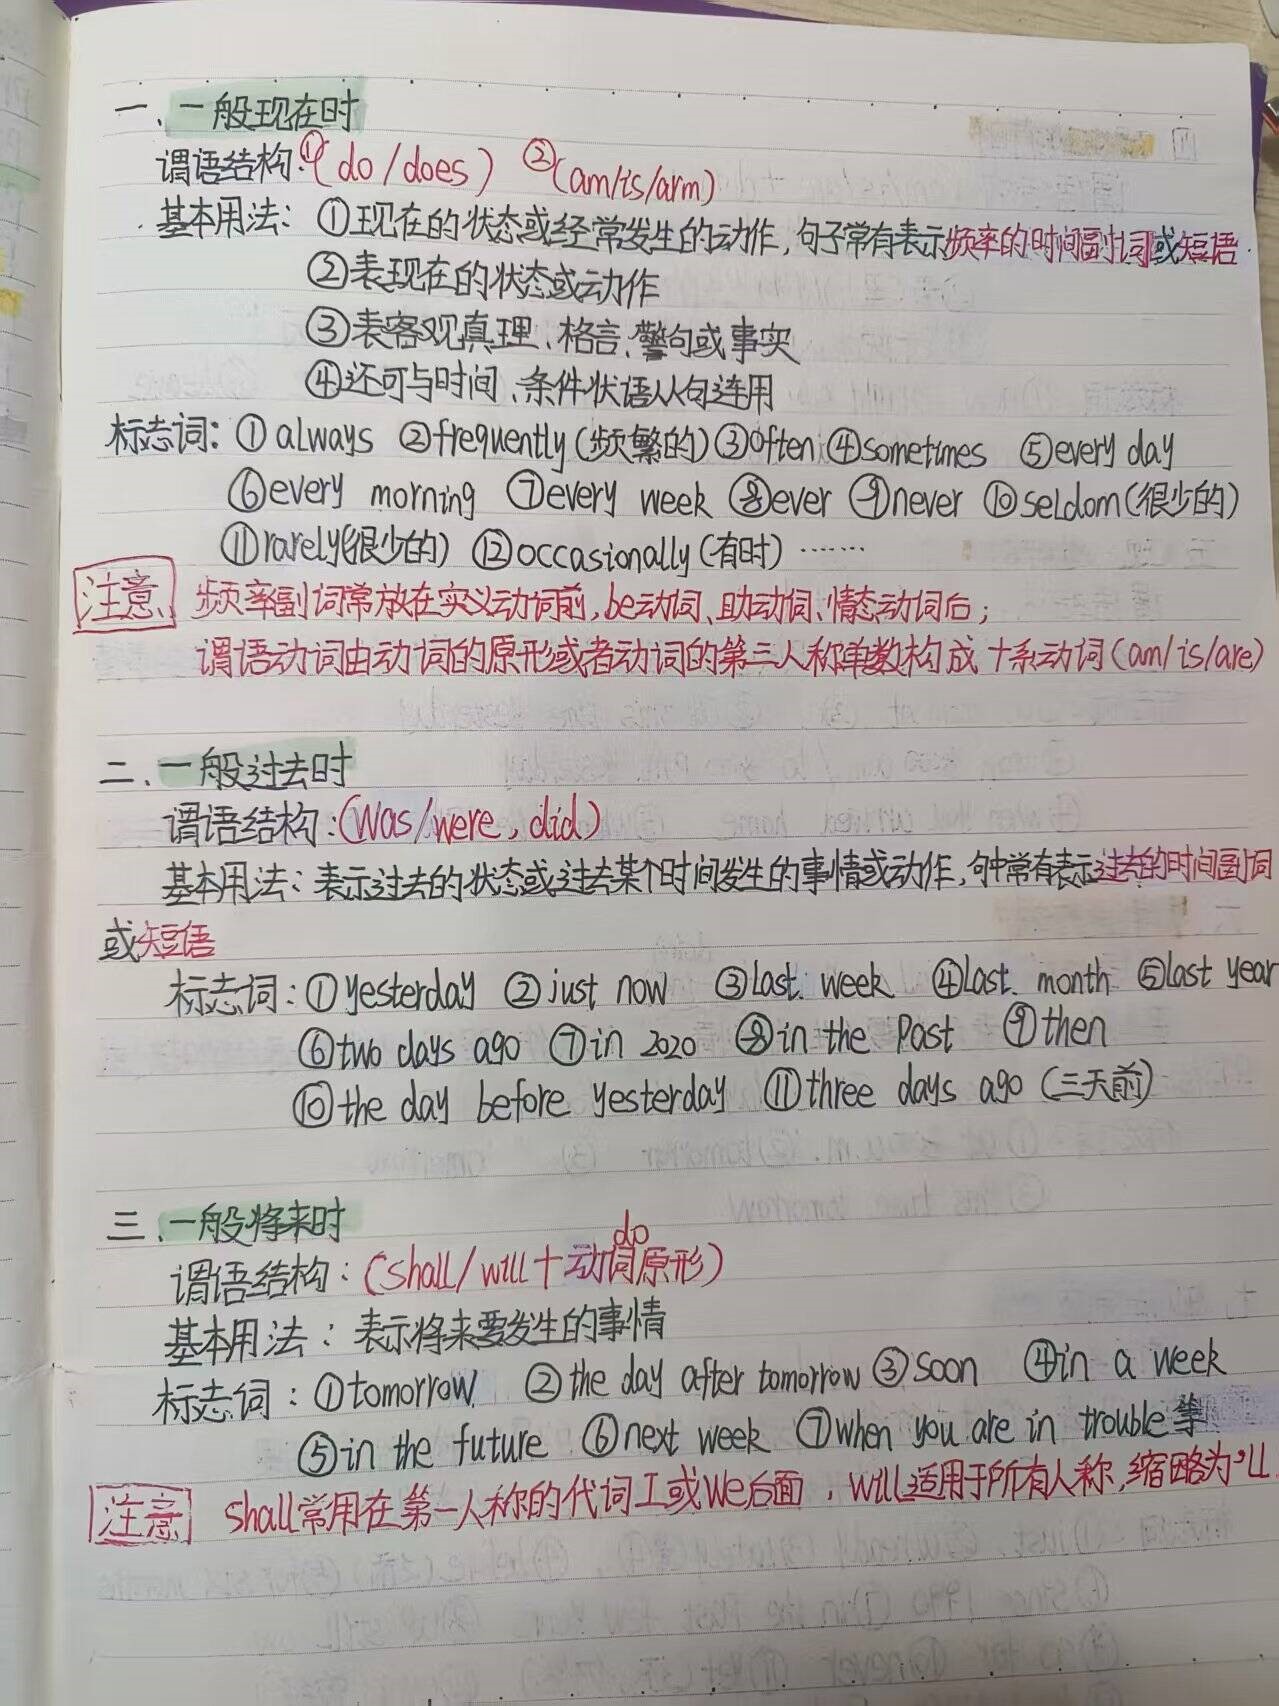 一、一般现在时
谓语结构:①(do/does) ②(am/is/arm)
基本用法: ①现在的状态或经常发生的动作,句子常有表示频率的时间副词或短语.
②表现在的状态或动作
③表客观真理、格言、警句或事实
④还可与时间、条件状语从句连用
标志词: ①always ②frequently(频繁的)③often ④sometimes ⑤every day
⑥every morning ⑦every week ⑧ever ⑨never ⑩seldom(很少的)
⑪rarely(很少的) ⑫occasionally(有时)……
注意 频率副词常放在实义动词前,be动词、助动词、情态动词后;
谓语动词由动词的原形或者动词的第三人称单数构成 十系动词(am/is/are)
二、一般过去时
谓语结构:(was/were, did)
基本用法: 表示过去的状态或过去某个时间发生的事情或动作,句中常有表示过去的时间副词
或短语
标志词: ①yesterday ②just now ③last week ④last month ⑤last year
⑥two days ago ⑦in 2020 ⑧in the past ⑨then
⑩the day before yesterday ⑪three days ago (三天前)
三、一般将来时
do
谓语结构: (shall/will+动词原形)
基本用法: 表示将来要发生的事情
标志词: ①tomorrow ②the day after tomorrow ③soon ④in a week
⑤in the future ⑥next week ⑦when you are in trouble等
注意 shall常用在第一人称的代词I或we后面,will适用于所有人称,缩略为'll.